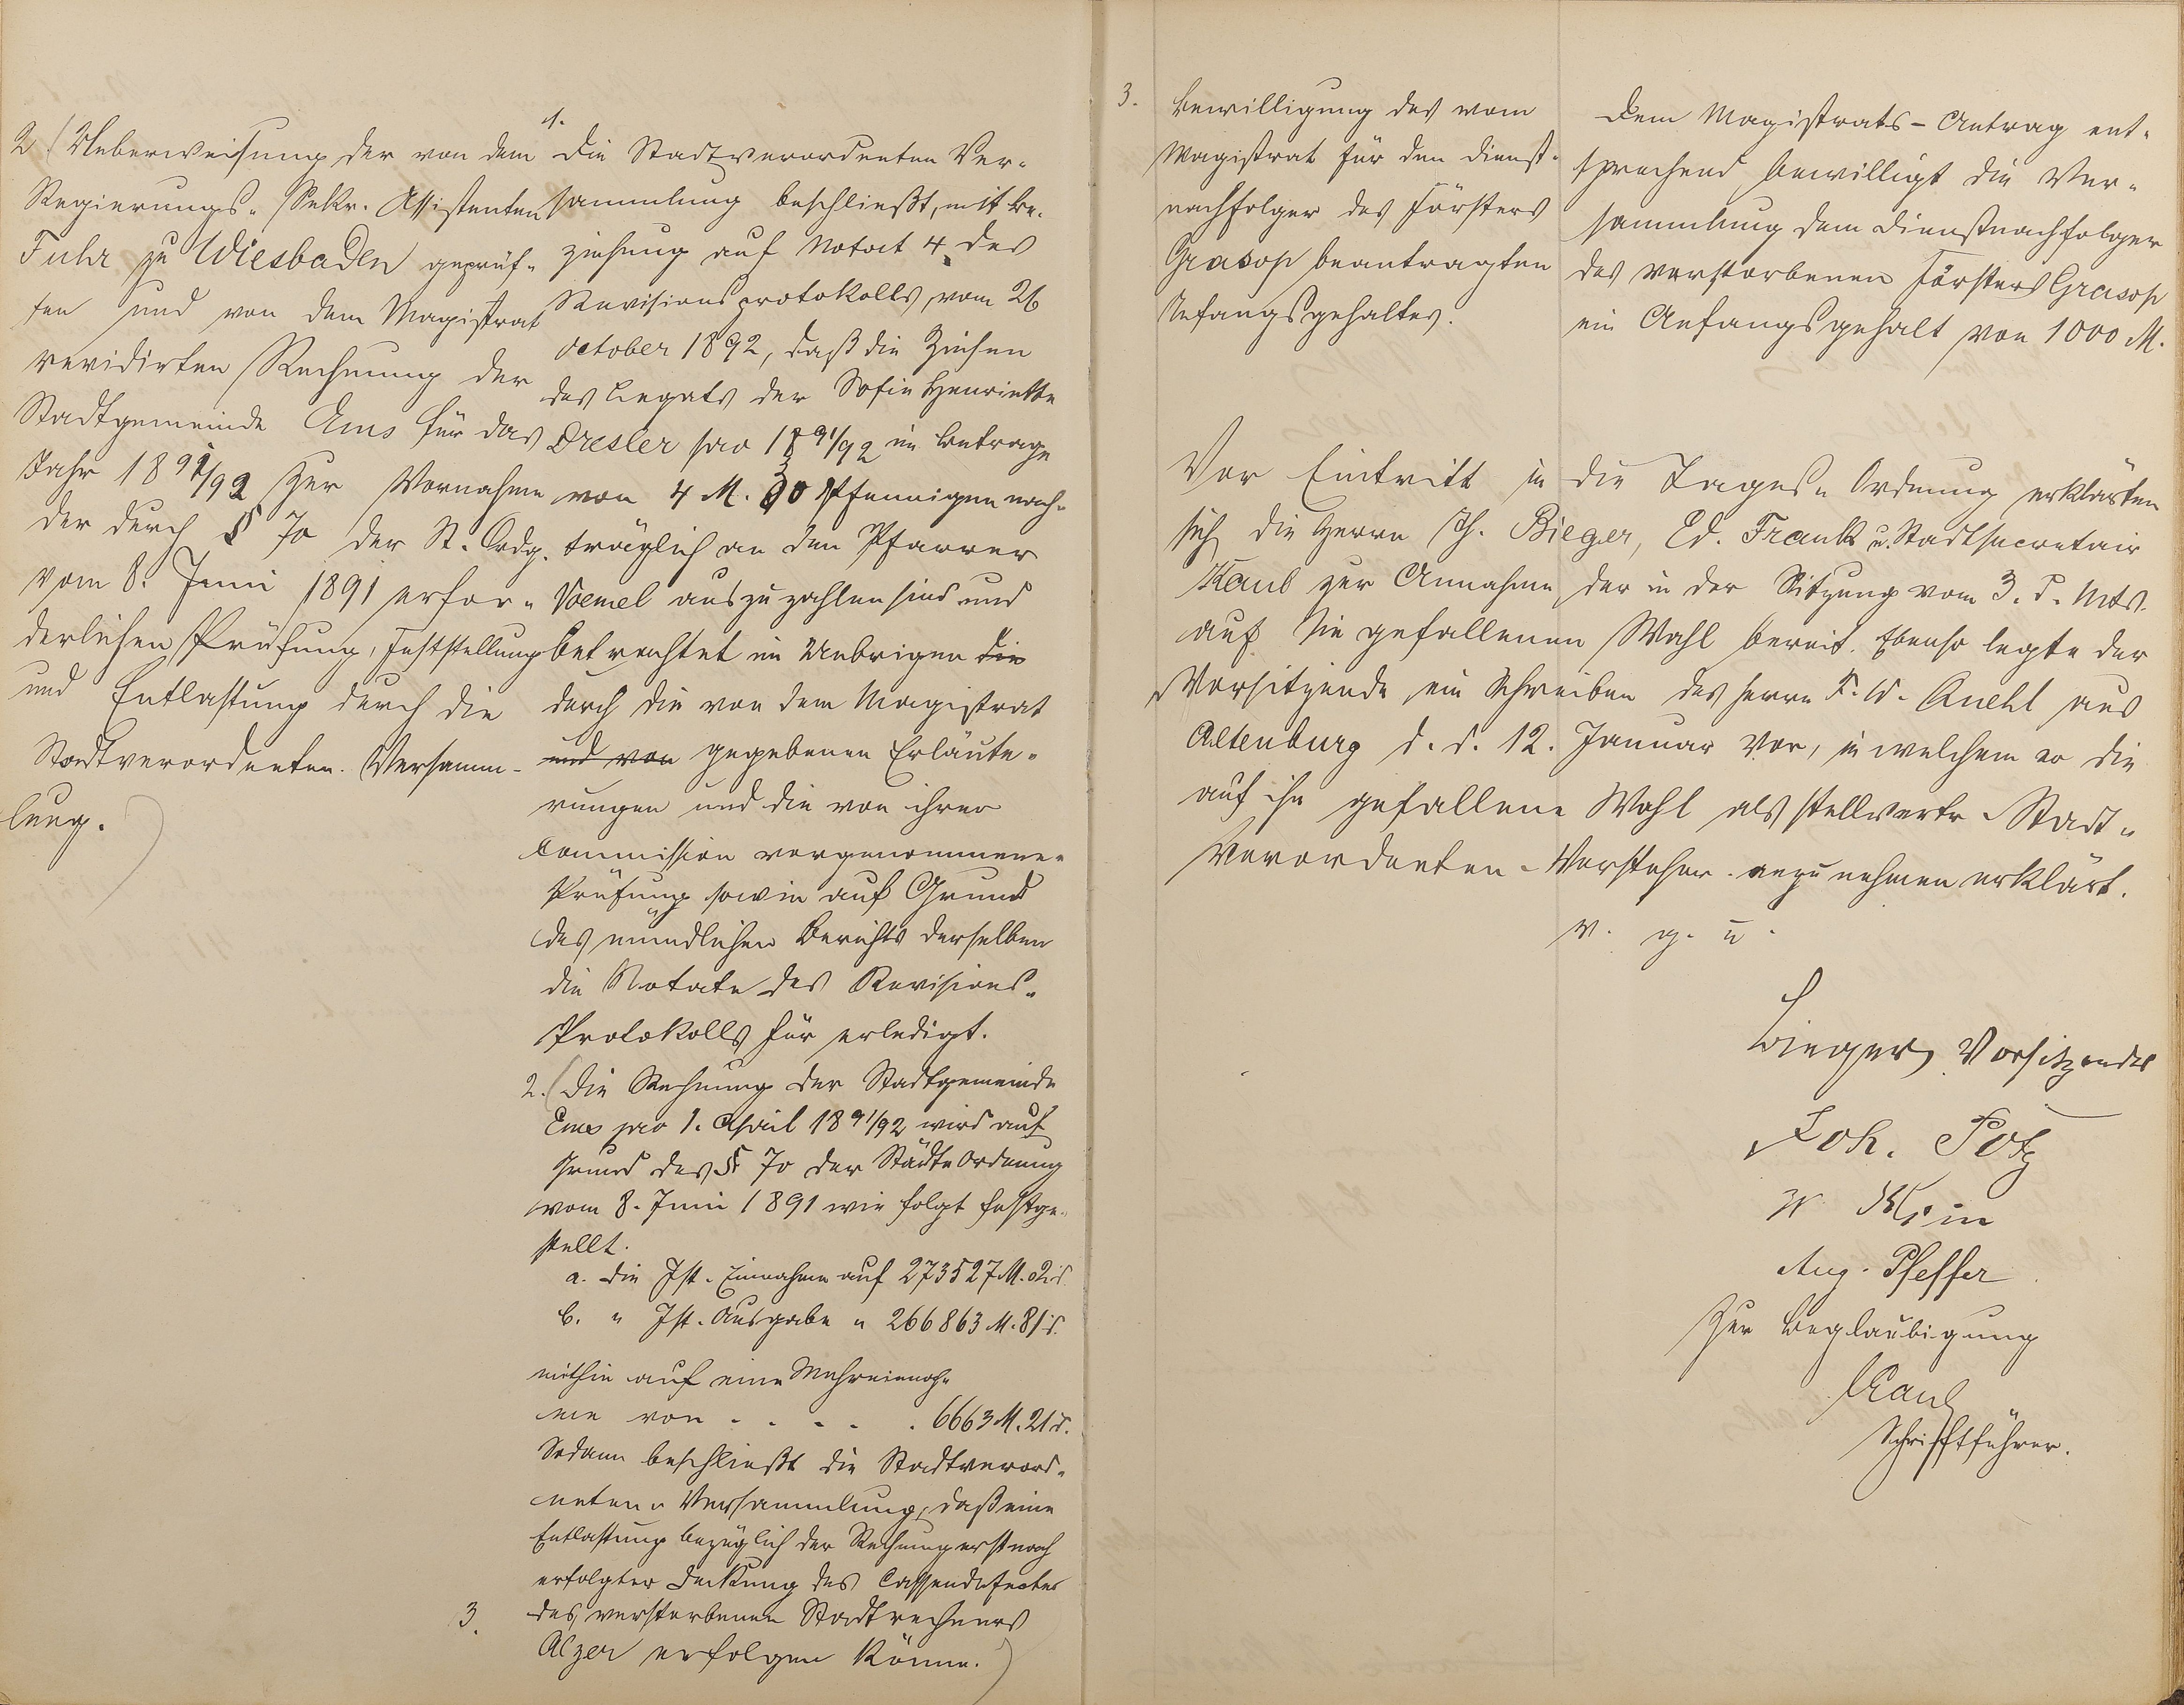 2 (Ueberweisung der von dem
Regierungs- Sekr. Assistenten
Fuhr zu Wiesbaden geprüf-
ten und von dem Magistrat
revidirten Rechnung der
Stadtgemeinde Ems für das
Jahr 1891/92 zur Vornahme
der durch § 70 der St. Ordg.
vom 8. Juni 1891 erfor-
derlichen Prüfung, Feststellung
und Entlastung durch die
Stadtverordneten-Versamm-
lung.)
1.
die Stadtverordneten Ver-
sammlung beschließt, mit Be-
ziehung auf Notat 4 des
Revisionsprotokolls vom 26
October 1892, daß die Zinsen
des Legats der Sofie Henriette
Dresler pro 1891/92 im Betrage
von 4 M. 30 Pfennigen nach-
träglich an den Pfarrer
Voemel auszuzahlen sind und
betrachtet im Uebrigen die
durch die von dem Magistrat
und von gegebenen Erläute-
rungen und die von ihrer
Commission vorgenommene
Prüfung sowie auf Grund
des mündlichen Berichts derselben
die Notate des Revisions-
Protokolls für erledigt.
2. (Die Rechnung der Stadtgemeinde
Ems pro 1. April 1891/92 wird auf
Grund des § 70 der Städte Ordnung
vom 8. Juni 1891 wie folgt festge-
stellt.
a. die Ist-Einnahme auf 273527 M. 02 d.
b. " Ist-Ausgabe " 266863 M. 81 d.
mithin auf eine Mehreinnah-
me von . . . . . 6663 M. 21 d.
Sodann beschließt die Stadtverord-
neten-Versammlung, daß eine
Entlastung bezüglich der Rechnung erst nach
erfolgter Deckung des Cassendefectes
3. des verstorbenen Stadtrechners
Alzer erfolgen könne.)
3. Bewilligung des vom
Magistrat für den Dienst-
nachfolger des Försters
Grasop beantragten
Anfangsgehaltes.
Dem Magistrats-Antrag ent-
sprechend bewilligt die Ver-
sammlung dem Dienstnachfolger
des verstorbenen Försters Grasop
ein Anfangsgehalt von 1000 M.
Vor Eintritt in die Tages-Ordnung erklärten
sich die Herrn Th. Bieger, Ed. Frank u. Stadtsecretair
Kaul zur Annahme der in der Sitzung vom 3. d. Mts.
auf sie gefallenen Wahl bereit. Ebenso legte der
Vorsitzende ein Schreiben des Herrn F. W. Quehl aus
Altenburg d. d. 12. Januar vor, in welchem er die
auf ihn gefallene Wahl als stellvertr. Stadt-
Verordneten-Vorsteher anzunehmen erklärt.
v. g. u.
Bieger, Vorsitzender
Joh. Potz
W Klein
Aug. Pfeffer
Zur Beglaubigung
Kaul
Schriftführer.